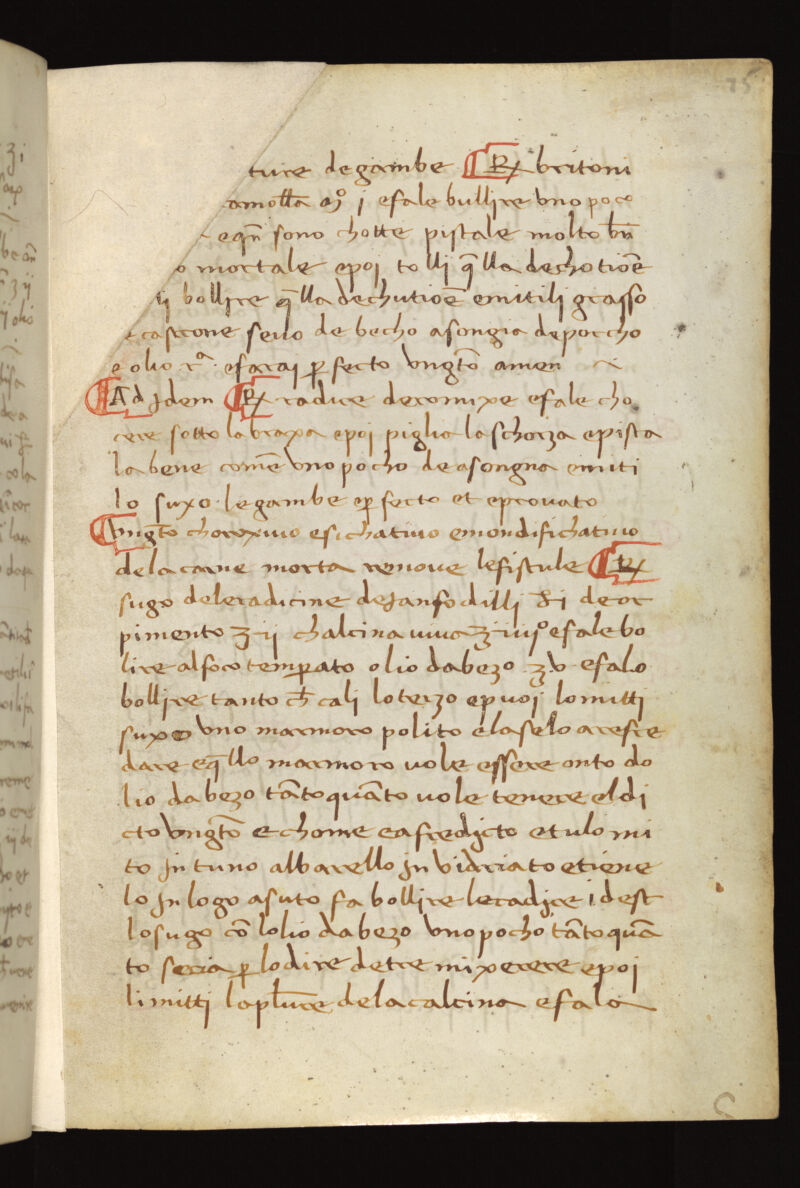 75
ture de gambe ℞ britoni
amoll̃a aq̊ j e fale bullire vno poco
e qñ sono chotte pistale molto bñ
o mortale e poj tolli q̃lla dechotiōe
ij bollire q̃lla dechutiōe e mitili grasso
castrone seuo de becho asongia de porcho
e olio rᵃ e faraj ꝑfecto vngt̃o amen
Ad jdem ℞ radice de romixe e fale cho
cere sotto la braxa e poj piglia la schorza e pista
la bene comē vno pocho de asongna e miti
lo suxo le gambe e ꝑfecto et eprouato
vngt̃o choroxiuo e sichatiuo e mondifichatiuo
de la carne morta renoue le fistule ℞
sugo dele radicine de janfodilli ℥ j de or
pimento ℥ ij chalcina uiua ℥ iiijº e fale bo
lire al foco temꝑato olio dabezo ℥ v e falo
bollire tanto ch̃ cali lo terzo e puoj lo mitti
suxo vno marmoro polito e laselo a refre
dare e q̃llo marmoro uole essere onto do
lio dabezo tāto quāto uole tenere el di
cto vngt̃o e chome ea fredjcto e tulo mi
to jn tuno albarello jnvidriato e tiene
lo jn logo asuto fa bollire le radjce i dest
lo sugo cō lolio dabezo vno pocho tāto quā
to seria ꝑ lo dire de tre mixerere e poj
li mitti la pl̃uere de la calcina e falo